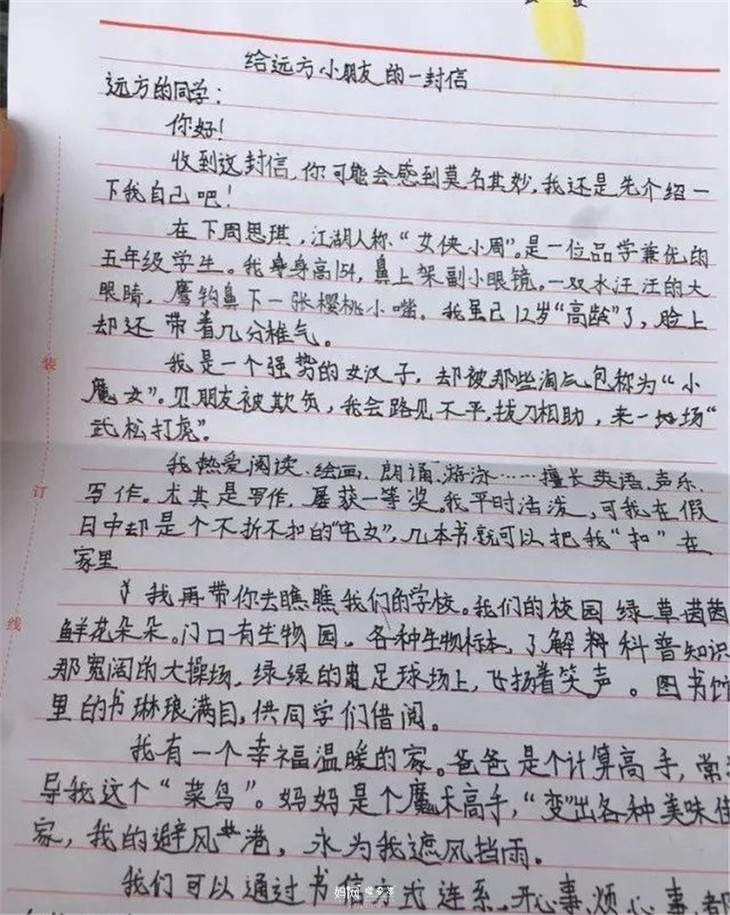 给远方小朋友的一封信
远方的同学：
你好！
收到这封信，你可能会感到莫名其妙，我还是先介绍一
下我自己吧！
在下周思琪，江湖人称“女侠小周”。是一位品学兼优的
五年级学生。我身高154，鼻上架副小眼镜。一双水汪汪的大
眼睛，鹰钩鼻下一张樱桃小嘴。我虽已12岁“高龄”了，脸上
却还带着几分稚气。
我是一个强势的女汉子，却被那些淘气包称为“小
魔女”。见朋友被欺负，我会路见不平，拔刀相助，来一场“
武松打虎”。
我热爱阅读、绘画、朗诵、游泳……擅长英语、声乐、
写作。尤其是写作，屡获一等奖。我平时活泼，可我在假
日中却是个不折不扣的“宅女”，几本书就可以把我“扣”在
家里
我再带你去瞧瞧我们的学校。我们的校园绿草茵茵
鲜花朵朵。门口有生物园。各种生物标本，了解科普知识
那宽阔的大操场，绿绿的足球场上，飞扬着笑声。图书馆
里的书琳琅满目，供同学们借阅。
我有一个幸福温暖的家。爸爸是个计算高手，常
导我这个“菜鸟”。妈妈是个魔术高手，“变”出各种美味佳
家，我的避风港，永为我遮风挡雨。
我们可以通过书信方式连系。开心事，烦心事，都
装
订
线
妈网